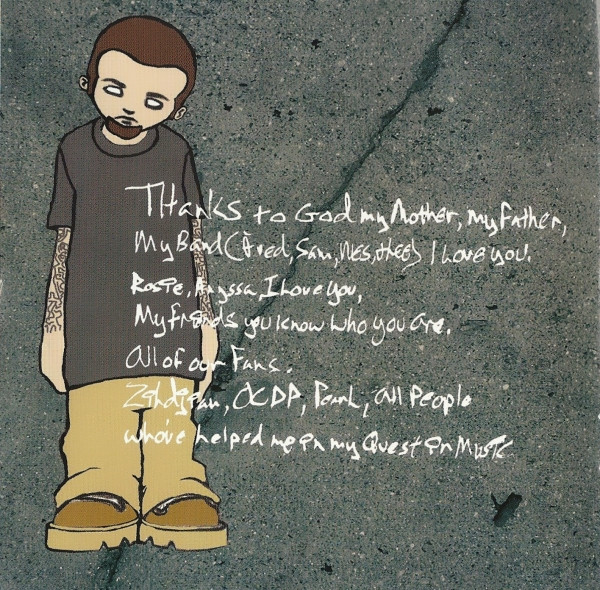 Thanks to God my Mother, my Father,
My Band (Fred, Sam, Wes, Lethal) I Love you.
Rosie, Alyssa, I Love you,
My friends you know who you are.
All of our Fans.
Zildjian, OCDP, Pearl, all People
who've helped me in my Quest in Music